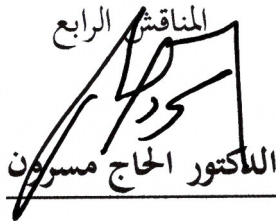 المناقش الرابع
الدكتور الحاج مسرون